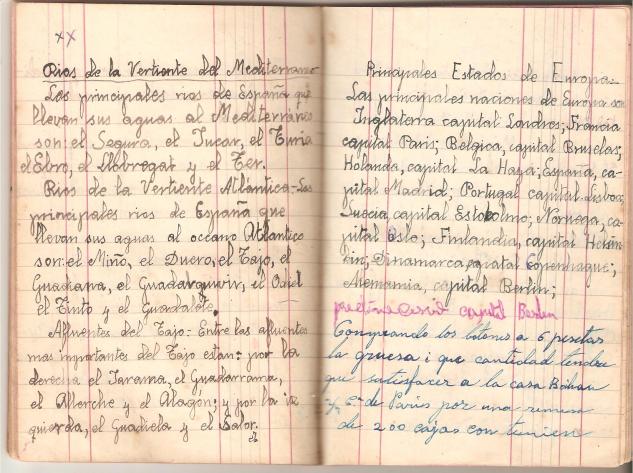 xx
Rios de la Vertiente del Mediterraneo
Los principales rios de España que
llevan sus aguas al Mediterraneo
son: el Segura, el Jucar, el Turia
el Ebro, el Llobregat y el Ter.
Rios de la Vertiente Atlántica-Los
principales rios de España que
llevan sus aguas al oceano Atlantico
son: el Miño, el Duero, el Tajo, el
Guadiana, el Guadarquivir, el Odiel
el Tinto y el Guadalete.
Afluentes del Tajo: Entre las afluentes
mas importantes del Tajo estan: por la
derecha el Jarama, el Guadarrama,
el Alberche y el Alagon; y por la iz
quierda, el Guadiela y el Salor.
Principales Estados de Europa-
Las principales naciones de Europa son
Inglaterra capital Londres; Francia
capital Paris; Belgica, capital Bruselas;
Holanda, capital La Haya; España, ca-
pital Madrid; Portugal capital Lisboa;
Suecia, capital Estokolmo; Noruega, ca-
pital Oslo; Finlandia, capital Helsin
ki; Dinamarca, capatal Copenhague;
Alemania, capital Berlin;
capital Berlin
Comprando los botones a 6 pesetas
la gruesa i que cantidad tendra
que satisfacer a la casa
de Paris por una remesa
de 200 cajas con